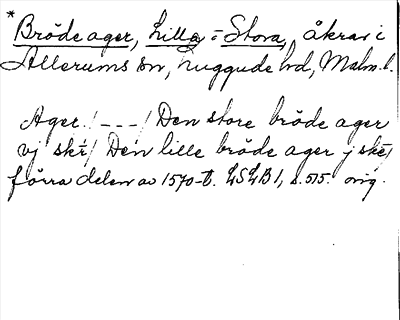 *Bröde ager, Lilla = Stora, åkrar i
Allerums sn, Luggude hd, Malm.l.
Ager. /---/ Den store bröde ager
vj skr/ Den lille bröde ager j skr/
förra delen av 1570-t. LSLB1, s. 515. orig.